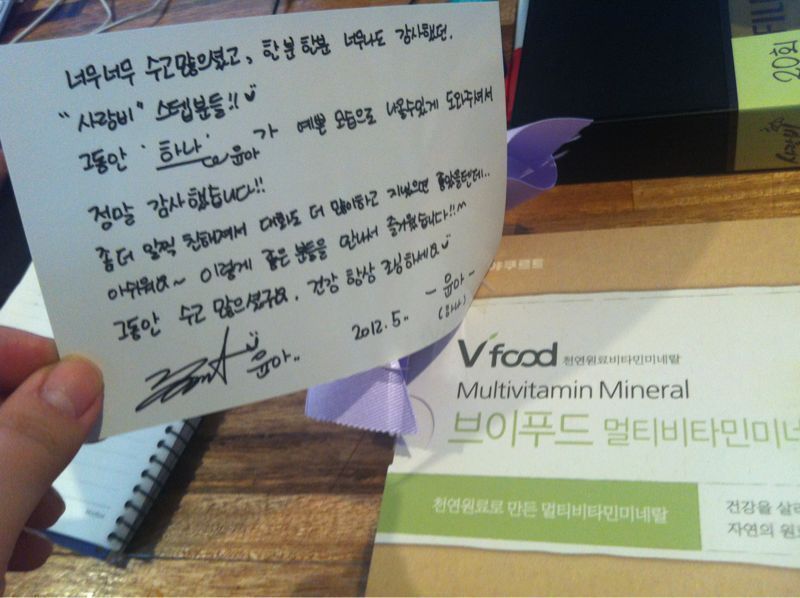 너무너무 수고많으셨고, 한분한분 너무나도 감사했던.
"사랑비" 스텝분들!!
그동안 '하나' 윤아가 예쁜 모습으로 나올수있게 도와주셔서
정말 감사했습니다!!
좀더 일찍 친해져서 대화도 더 많이하고 지냈으면 좋았을텐데..
아쉬워요~ 이렇게 좋은 분들을 만나서 즐거웠습니다!!^^
그동안 수고 많으셨구요. 건강 항상 조심하세요
- 윤아 -
(하나)
2012. 5..
윤아..
20회
사랑비
야쿠르트
V'food 천연원료비타민미네랄
Multivitamin Mineral
브이푸드 멀티비타민미네
천연원료로 만든 멀티비타민미네랄
건강을 살
자연의 원